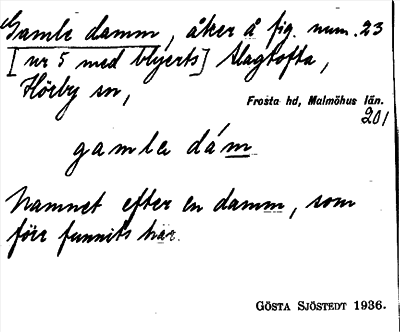 Gamle damm, åker å fig. num. 23
[nr 5 med blyerts] Slagtofta,
Hörby sn,
Frosta hd, Malmöhus län.
201
gamle dám
Namnet efter en damm, som
förr funnits här.
GÖSTA SJÖSTEDT 1936.